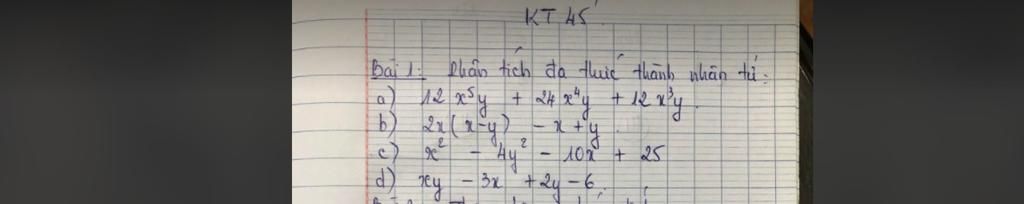 KT 45'
Bài 1: Phân tích đa thức thành nhân tử:
a) 12x⁵y + 24x⁴y + 12x³y.
b) 2x(x-y) - x + y.
c) x² - 4y² - 10x + 25
d) xy - 3x + 2y - 6.